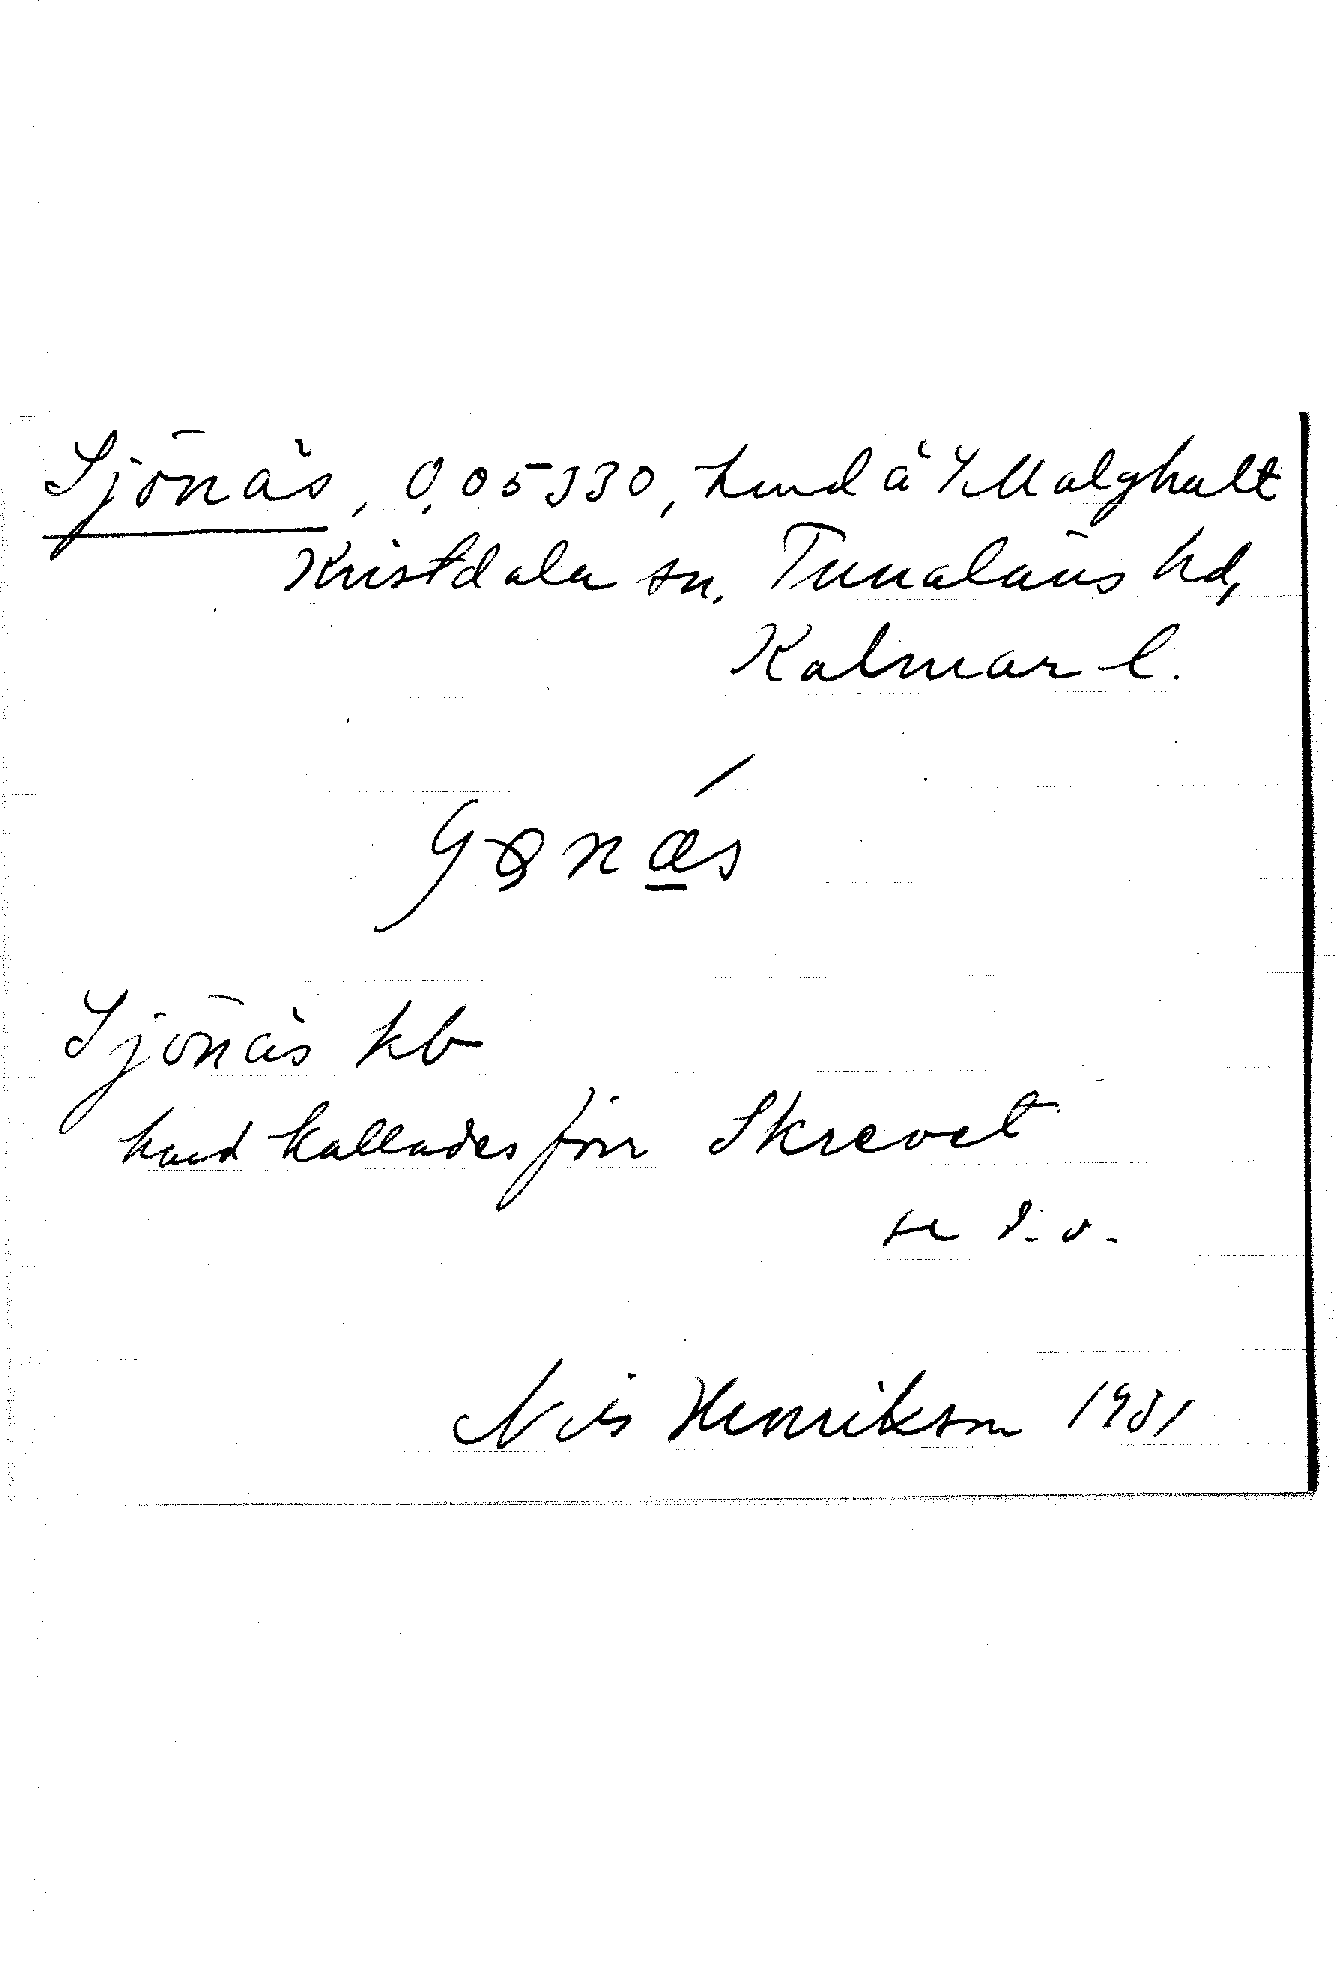 Sjönäs, 0,05330, hmd å Malghult
Kristdala sn, Tunaläns hd,
Kalmar l.
Sjönäs kb
hmd kallades förr Skrevet
se d.o.
Nils Henrikson 1931